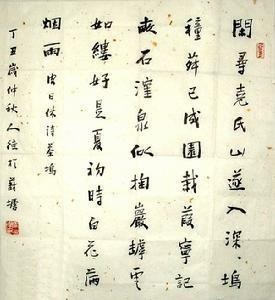 閑尋堯氏山遂入深〻塢
種荈已成園栽葭寧記
畝石窪泉似掬巖罅雲
如縷好是夏初時白花滿
烟雨 皮日休詩茶塢
丁丑歲仲秋人於塘